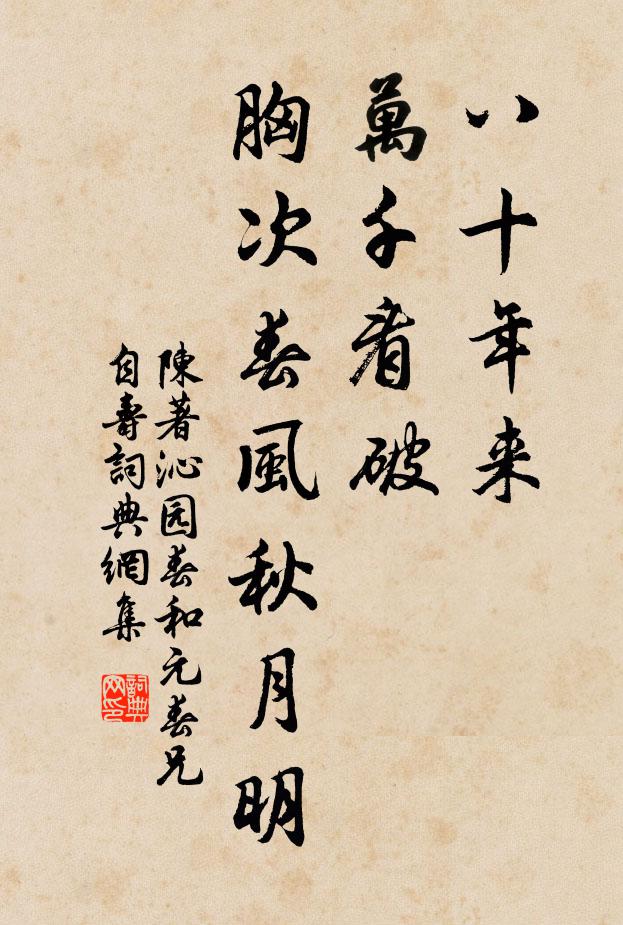 八十年来
萬千看破
胸次春風秋月明
陳著沁园春和元春兄
自壽詞典網集
詞典网印